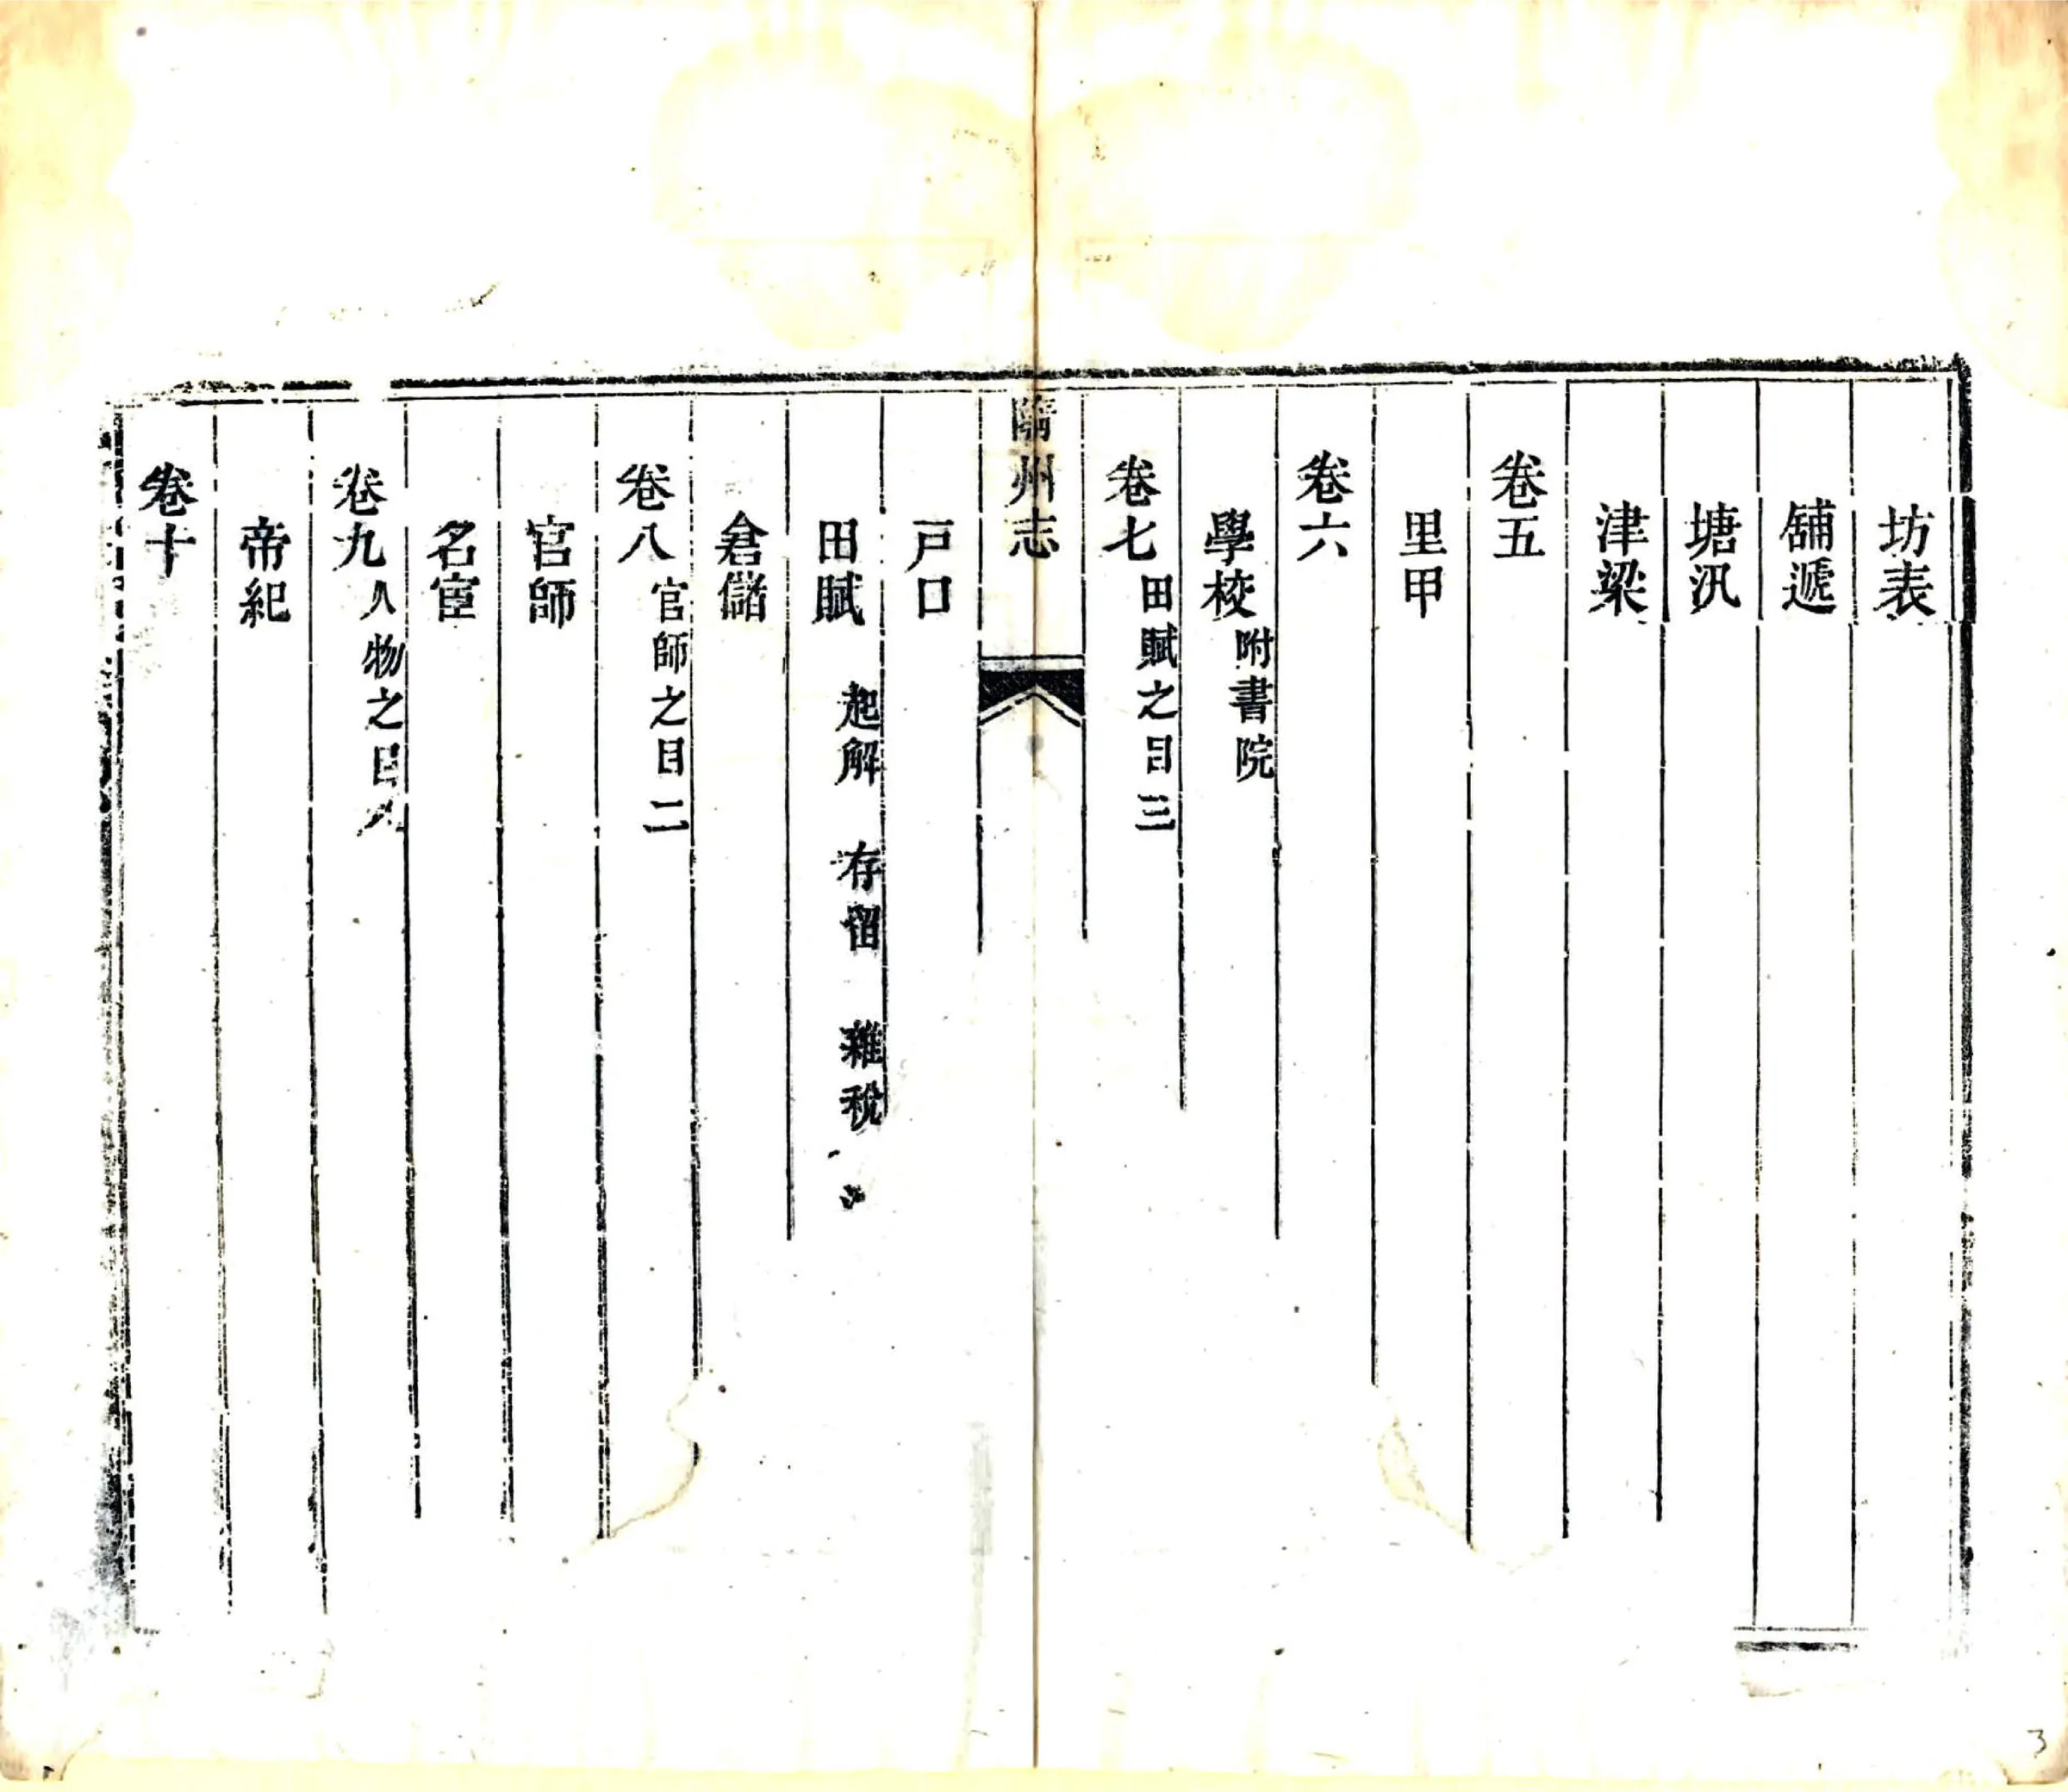 坊表
舖遞
塘汛
津梁
卷五
里甲
卷六
學校 附書院
卷七 田賦之目三
州志
戸口
田賦 起解 存留 雜稅
倉儲
卷八 官師之目二
官師
名宦
卷九 人物之目
帝紀
卷十
3